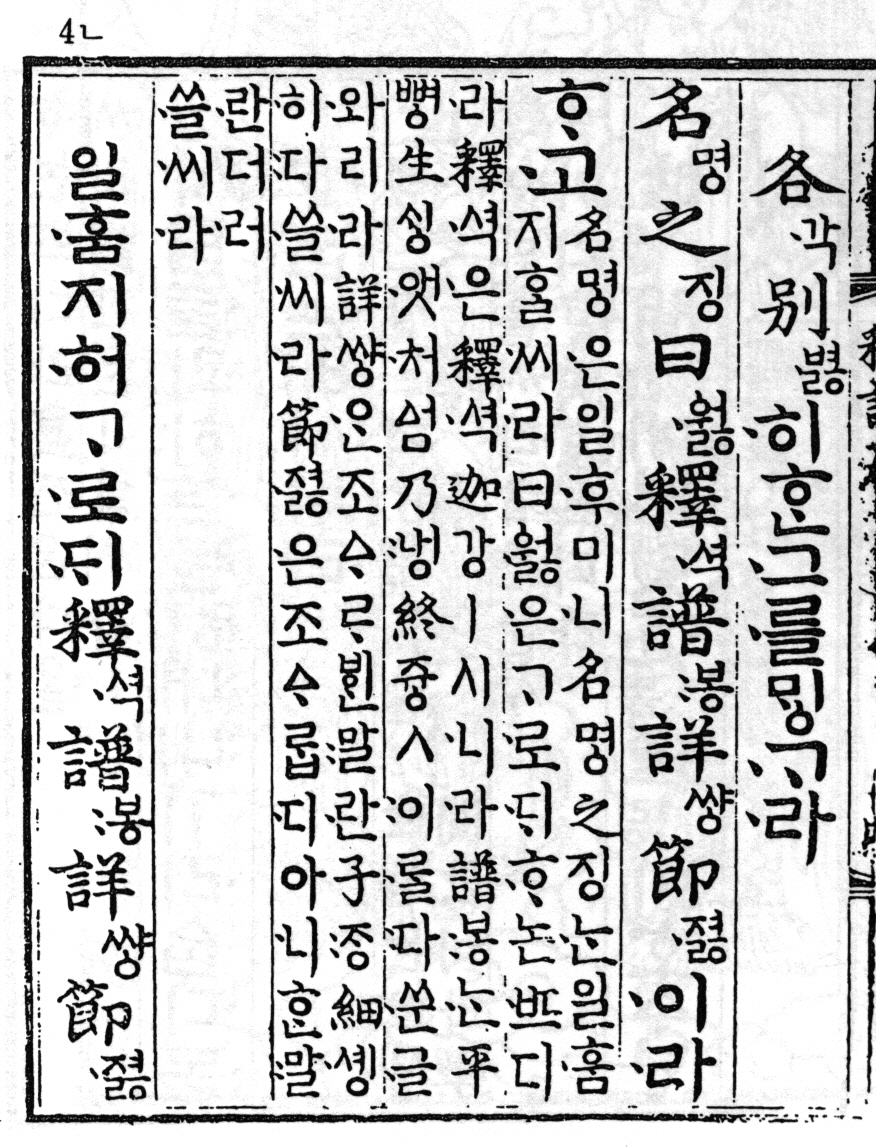 4ㄴ
各각別볋히ᄒᆞᆫ그를ᄆᆡᇰᄀᆞ라
名명之징曰웛釋셕譜봉詳썅節졇이라
ᄒᆞ고
名명은일후미니名명之징ᄂᆞᆫ일훔
지ᄒᆞᆯ씨라曰웛은ᄀᆞ로ᄃᆡᄒᆞ논ᄠᅳ디
라釋셕은釋셕迦강ㅣ시니라譜봉ᄂᆞᆫ平
뼝生ᄉᆡᇰ앳처ᅀᅥᆷ乃냉終즁ㅅ이ᄅᆞᆯ다쑨글
와리라詳썅ᄋᆞᆫ조ᅀᆞᄅᆞᄫᆡᆫ말란子ᄌᆞᆼ細솅
하다쓸씨라節졇은조ᅀᆞᄅᆞᆸ디아니ᄒᆞᆫ말
란더러
쓸씨라
일훔지허ᄀᆞ로ᄃᆡ釋셕譜봉詳썅節졇